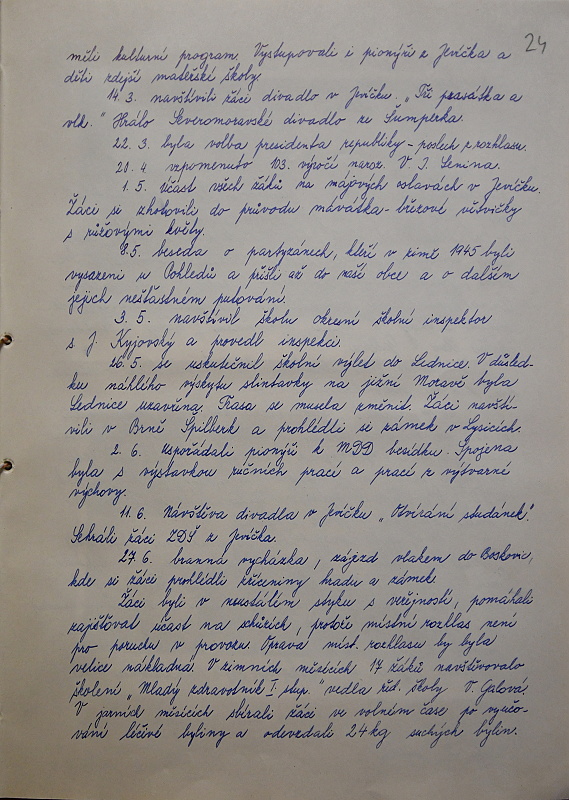 24
měli kulturní program. Vystupovali i pionýři z Jevíčka a
děti zdejší mateřské školy.
14.3. navštívili žáci divadlo v Jevíčku. „Tři prasátka a
vlk." Hrálo Severomoravské divadlo ze Šumperka.
22.3. byla volba presidenta republiky - poslech z rozhlasu.
20.4 vzpomenuto 103. výročí naroz. V. I. Lenina.
1.5. účást všech žáků na májových oslavách v Jevíčku.
Žáci si zhotovili do průvodu mávátka - březové větvičky
s růžovými květy.
8.5. beseda o partyzánech, kteří v zimě 1945 byli
vysazeni u Pohledů a přišli až do naší obce a o dalším
jejich nešťastném putování.
3.5. navštívil školu okresní školní inspektor
s J. Kyjovský a provedl inspekci.
26.5. se uskutečnil školní výlet do Lednice. V důsled-
ku náhlého výskytu slintavky na jižní Moravě byla
Lednice uzavřena. Trasa se musela změnit. Žáci navští-
vili v Brně Špilberk a prohlédli si zámek v Lysicích.
2.6. uspořádali pionýři k MDD besídku. Spojena
byla s výstavkou ručních prací a prací z výtvarné
výchovy.
11.6. Návštěva divadla v Jevíčku „Otvírání studánek".
Sehráli žáci ZDŠ z Jevíčka.
27.6. branná vycházka, zájezd vlakem do Boskovic,
kde si žáci prohlédli zříceniny hradu a zámek.
Žáci byli v neustálém styku s veřejností, pomáhali
zajišťovat účast na schůzích, protože místní rozhlas není
pro poruchu v provozu. Oprava míst. rozhlasu by byla
velice nákladná. V zimních měsících 17 žáků navštěvovalo
školení „Mladý zdravotník I. stup." vedla řed. školy V. Galová.
V jarních měsících sbírali žáci ve volném čase po vyučo-
vání léčivé byliny a odevzdali 24 kg suchých bylin.